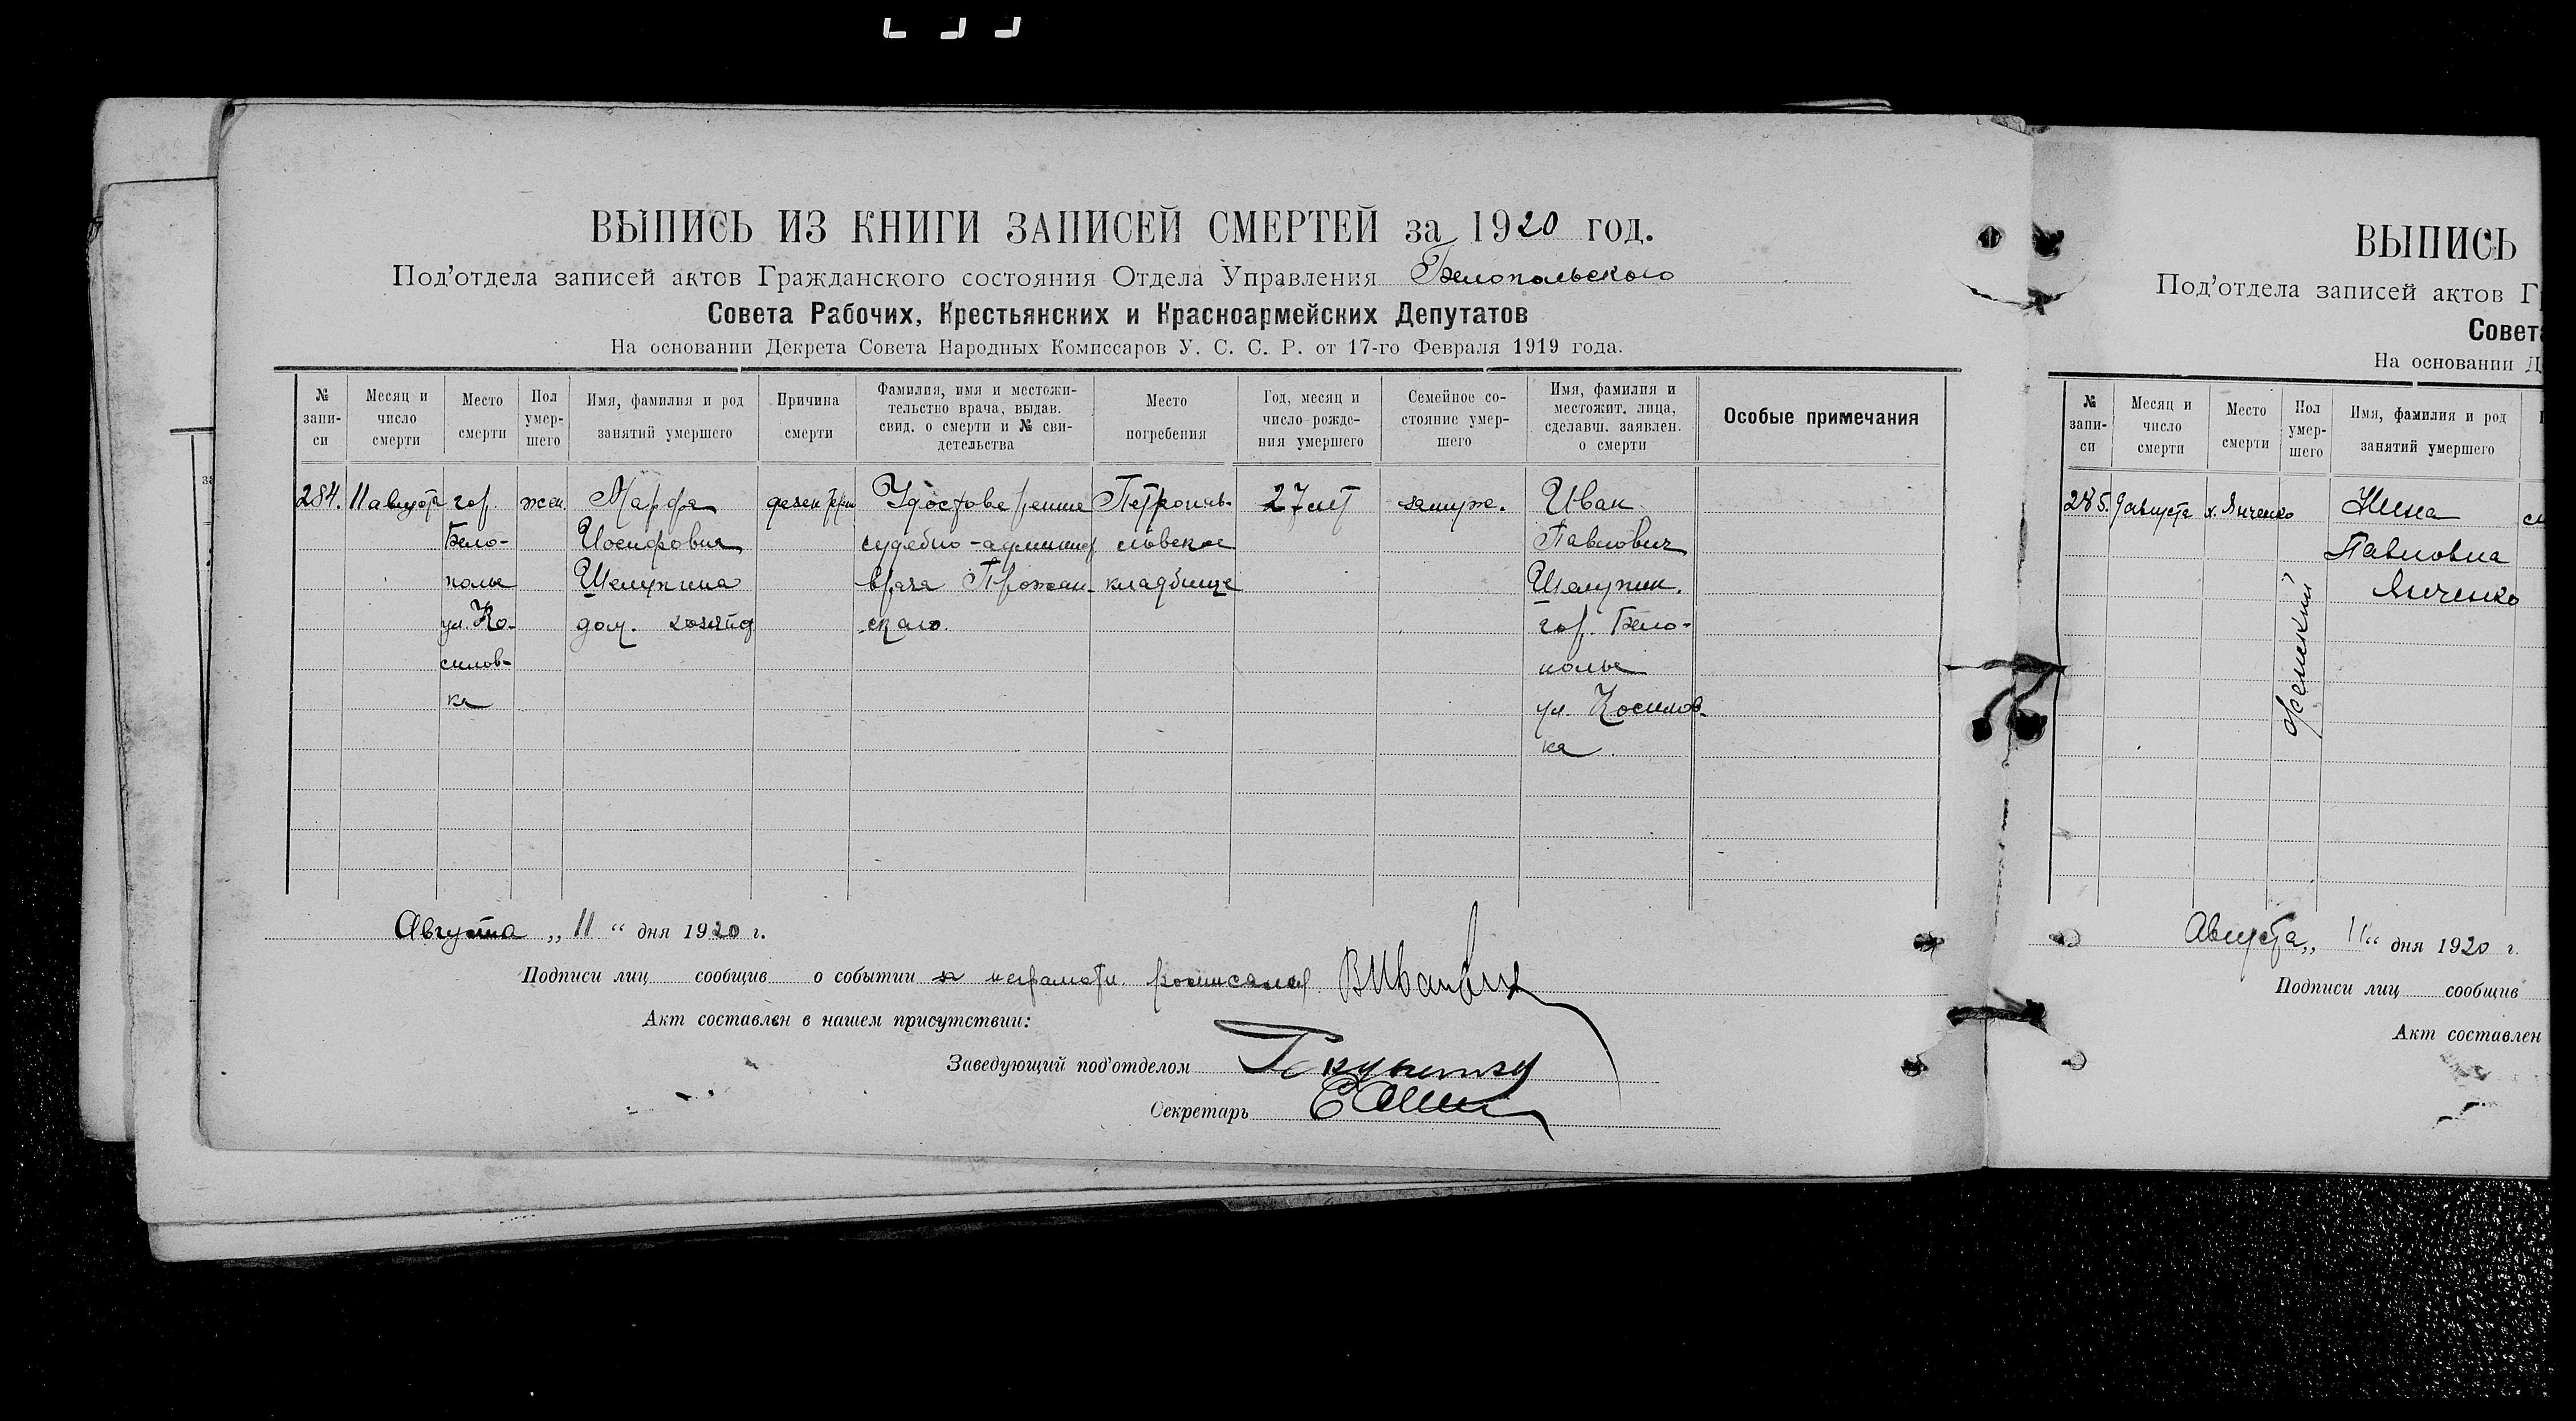 ВЫПИСЬ ИЗ КНИГИ ЗАПИСЕЙ СМЕРТЕЙ за 1920 год.
Под'отдела записей актов Гражданского состояния Отдела Управления Белопольского
Совета Рабочих, Крестьянских и Красноармейских Депутатов
На основании Декрета Совета Народных Комиссаров У. С. С. Р. от 17-го Февраля 1919 года.
№ запи-
си
Месяц и
число
смерти
Место
смерти
Пол
умер-
шего
Имя, фамилия и род
занятий умершего
Причина
смерти
Фамилия, имя и местожи-
тельство врача, выдав.
свид. о смерти и № сви-
детельства
Место
погребения
Год, месяц и
число рожде-
ния умершего
Семейное со-
стояние умер-
шего
Имя, фамилия и
местожит. лица,
сделавш. заявлен.
о смерти
Особые примечания
284.
11 августа
гор.
Бело-
полье
ул. Ко-
силов-
ка
жен.
Марфа
Иосифовна
Шелупина
дом. хозяйс
Удостоверение
судебно-админист
врача Прожан-
скаго.
Петропав-
ловское
кладбище
27 лет
замуж.
Иван
Павлович
Шелупин.
гор. Бело-
полье
ул. Косилов-
ка
Августа „ 11 “ дня 1920 г.
Подписи лиц сообщив о событии за неграмотн. росписался
Акт составлен в нашем присутствии:
Заведующий под'отделом
Секретарь
ВЫПИСЬ
Под'отдела записей актов Г
Совета
На основании Д
№
запи-
си
Месяц и
число
смерти
Место
смерти
Пол
умер-
шего
Имя, фамилия и род
занятий умершего
285.
9 августа
х. Янченко
женский
Нина
Павловна
Янченко
Августа „ 11 “ дня 1920 г.
Подписи лиц сообщив
Акт составлен